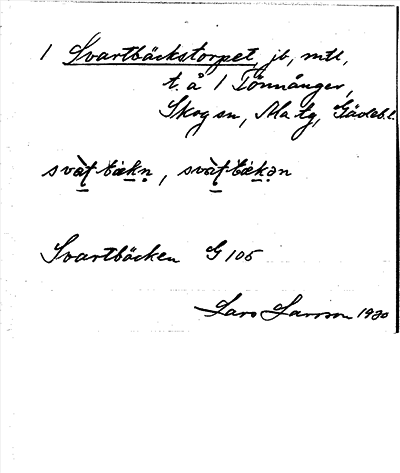 1 Svartbäckstorpet, jb, mtl,
t. å 1 Tönnånger,
Skog sn, Ma tg, Gävleb. l.
svàt̠bæk̠n̥, svàt̠bæk̠ən
Svartbäcken G 105
Lars Larsson 1930